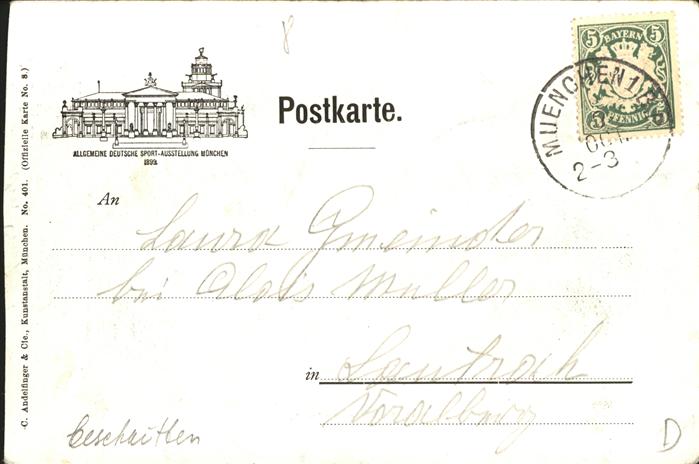 8
5 BAYERN 5
5 PFENNIG 5
MUENCHEN 1
OCT.
2-3
Postkarte.
ALLGEMEINE DEUTSCHE SPORT-AUSSTELLUNG MÜNCHEN
1899.
C. Andelfinger & Cie., Kunstanstalt, München. No. 401. (Offizielle Karte No. 8.)
An
Laura Gmeinder
bei Alois Müller
in
Vorarlberg
beschnitten
D